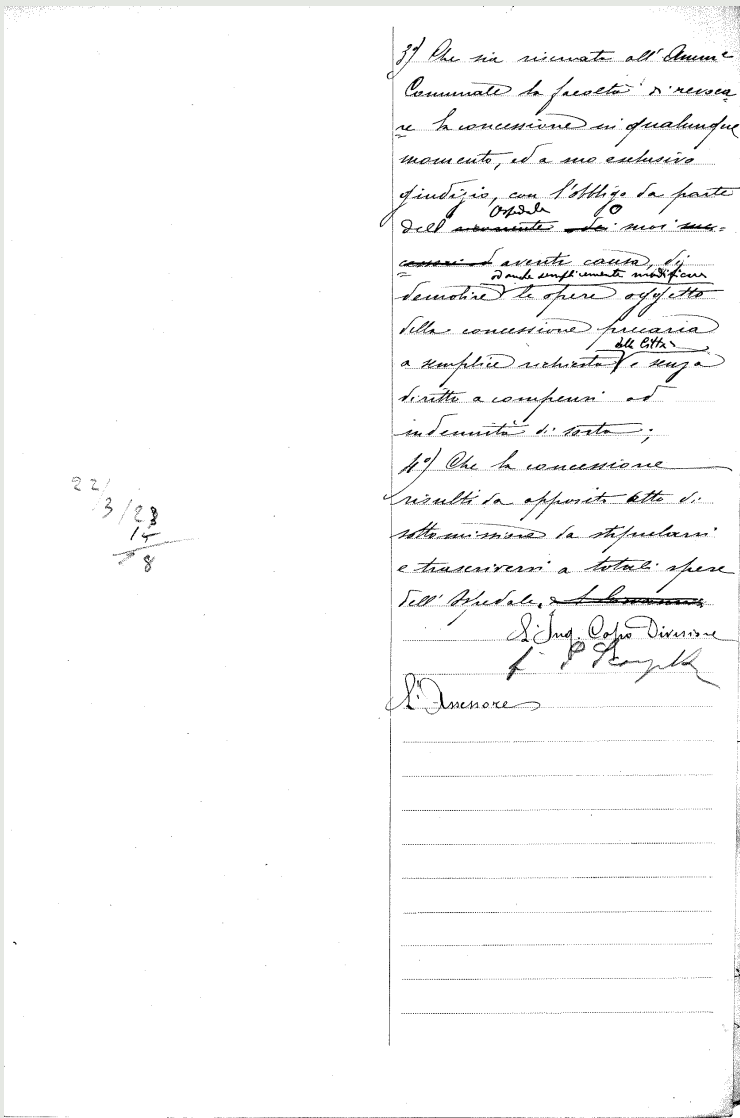 3°) Che sia riservata all'Amm.e
Comunale la facoltà di revoca
re la concessione in qualunque
momento, ed a suo esclusivo
giudizio, con l'obbligo da parte
Ospedale o
dell' suoi suc=
cessori aventi causa, di
od anche semplicemente modificare
demolire le opere oggetto
della concessione precaria
della Città
a semplice richiesta e senza
diritto a compensi od
indennità di sorta;
4°) Che la concessione
risulti da apposito atto di
sottomissione da stipularsi
e trascriversi a totali spese
dell'Ospedale.
L'Ing. Capo Divisione
L'Assessore
22/
3/28
15
8